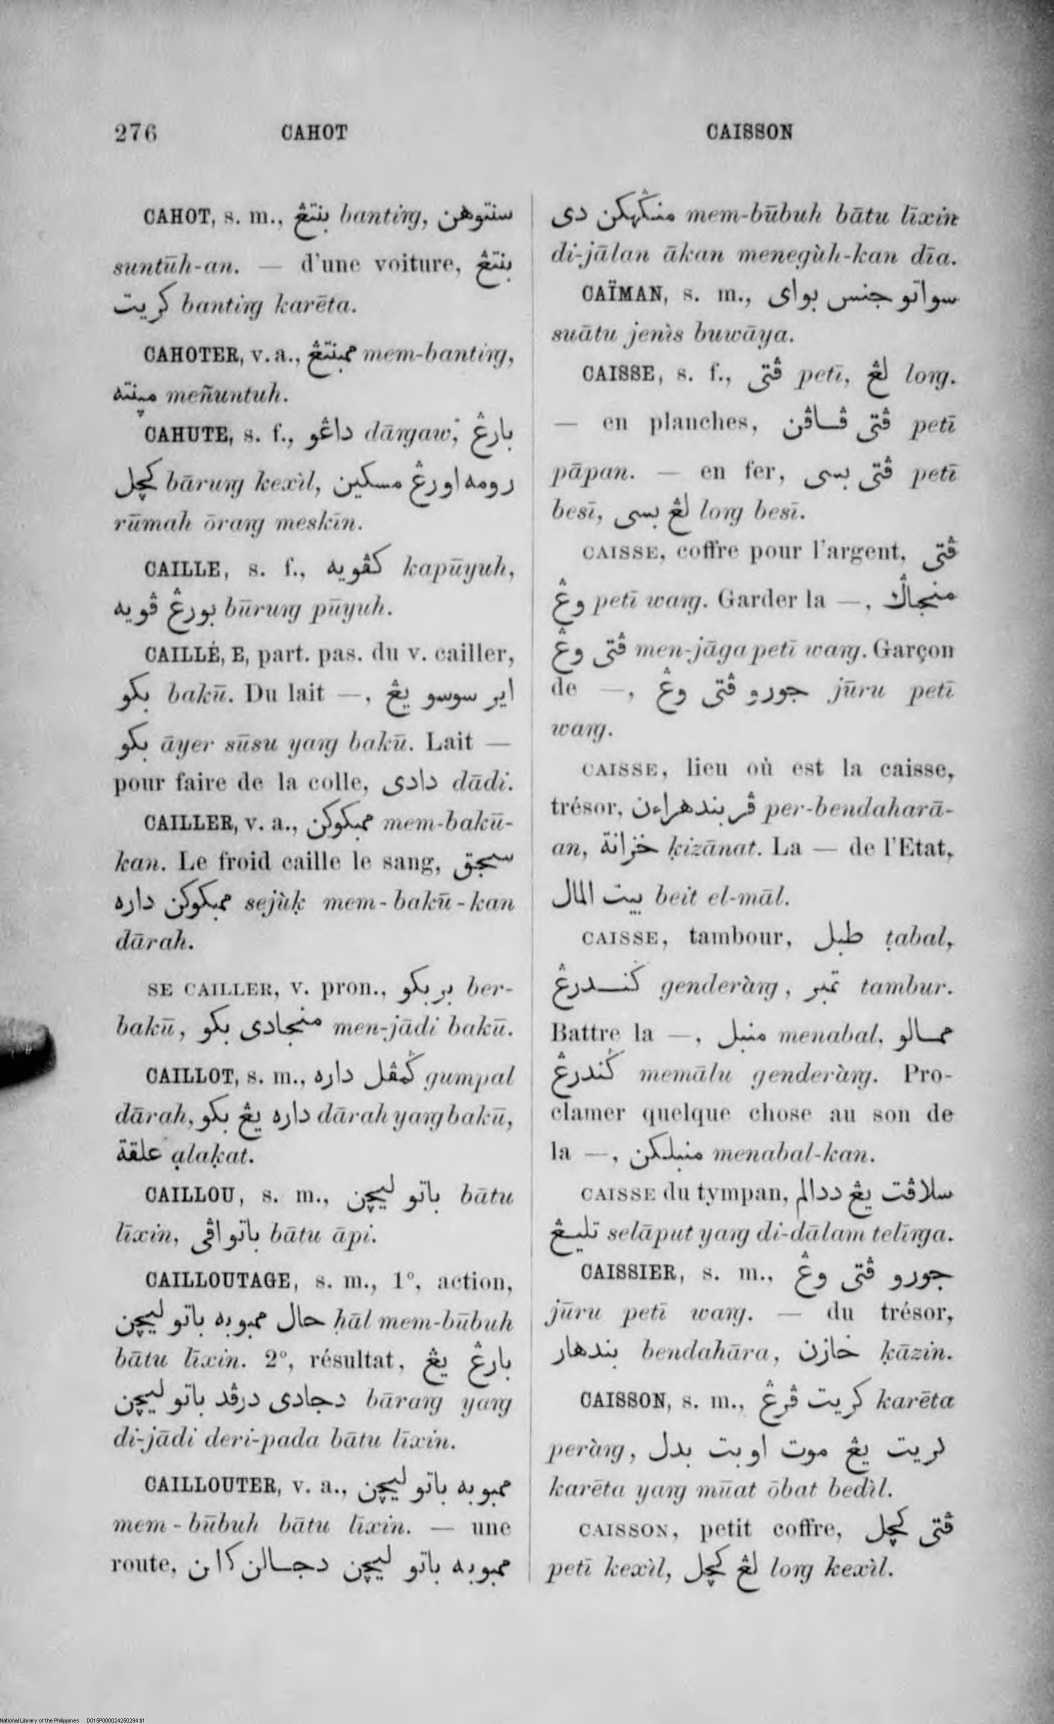 276 CAHOT CAISSON
CAHOT, s. m., بنتڠ bantiŋ, سنتوهن
suntūh-an. — d'une voiture, بنتڠ
کريت bantiŋ karēta.
CAHOTER, v. a., ممبنتڠ mem-bantiŋ,
meñuntuh.
CAHUTE, s. f., داڠو dāŋaw, بارڠ
کچل bāruŋ kexìl, رومه اورڠ مسکين
rūmah ōraŋ meskīn.
CAILLE, s. f., کڤويه kapūyuh,
بورڠ ڤويه būruŋ pūyuh.
CAILLÉ, E, part. pas. du v. cailler,
بکو bakū. Du lait —, اير سوسو يڠ
بکو āyer sūsu yaŋ bakū. Lait —
pour faire de la colle, دادى dādi.
CAILLER, v. a., ممبکوکن mem-bakū-
kan. Le froid caille le sang, سيجق
ممبکوکن داره sejùḳ mem-bakū-kan
dārah.
SE CAILLER, v. pron., بربکو ber-
bakū, منجادى بکو men-jādi bakū.
CAILLOT, s. m., ݢمڤل داره gumpal
dārah, داره يڠ بکو dārah yaŋ bakū,
علقة ạlaḳat.
CAILLOU, s. m., باتو ليچن bātu
līxin, باتو اڤى bātu āpi.
CAILLOUTAGE, s. m., 1°, action,
حال ممبوبه باتو ليچن ḥāl mem-būbuh
bātu līxin. 2°, résultat, بارڠ يڠ
دجادى درڤد باتو ليچن bāraŋ yaŋ
di-jādi deri-pada bātu līxin.
CAILLOUTER, v. a., ممبوبه باتو ليچن
mem-būbuh bātu līxin. — une
route, ممبوبه باتو ليچن دجالن
mem-būbuh bātu līxin
di-jālan ākan menegùh-kan dīa.
CAÏMAN, s. m., سواتو جنس بواى
suātu jenìs buwāya.
CAISSE, s. f., ڤتى petī, لڠ loŋ.
— en planches, ڤتى ڤاڤن petī
pāpan. — en fer, ڤتى بسى petī
besī, لڠ بسى loŋ besī.
CAISSE, coffre pour l'argent, ڤتى
وڠ petī waŋ. Garder la —, منجاݢ
ڤتى وڠ men-jāga petī waŋ. Garçon
de —, جورو ڤتى وڠ jūru petī
waŋ.
CAISSE, lieu où est la caisse,
trésor, ڤربندهراءن per-bendaharā-
an, خزانة ḳizānat. La — de l'Etat,
بيت المال beit el-māl.
CAISSE, tambour, طبل ṭabal,
ݢندرڠ genderàŋ, تمبر tambur.
Battre la —, منبل menabal, ممالو
ݢندرڠ memālu genderàŋ. Pro-
clamer quelque chose au son de
la —, منبلکن menabal-kan.
CAISSE du tympan, سلاڤت يڠ ددالم
تليڠ selāput yaŋ di-dālam telīŋa.
CAISSIER, s. m., جورو ڤتى وڠ
jūru petī waŋ. — du trésor,
بندهار bendahāra, خازن ḳāzin.
CAISSON, s. m., کريت ڤرڠ karēta
peràŋ, کريت يڠ موت اوبت بدل
karēta yaŋ mūat ōbat bedìl.
CAISSON, petit coffre, ڤتى کچل
petī kexìl, لڠ کچل loŋ kexìl.
National Library of the Philippines